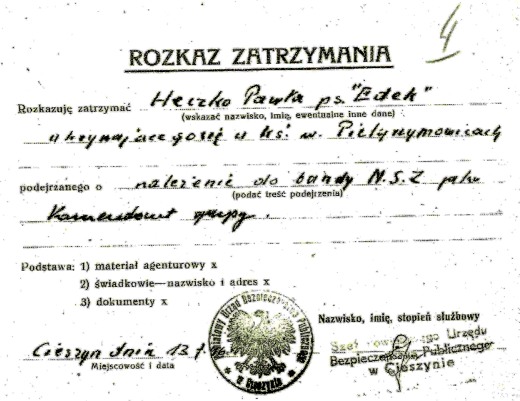 4
ROZKAZ ZATRZYMANIA
Rozkazuję zatrzymać Heczko Pawła ps. "Edek"
(wskazać nazwisko, imię, ewentualne inne dane)
ukrywającego się u ks. w.
podejrzanego o należenie do bandy N.S.Z jako
(podać treść podejrzenia)
Komendant grupy.
Podstawa: 1) materiał agenturowy x
2) świadkowie—nazwisko i adres x
3) dokumenty x
Urząd Bezpieczeństwa Publicznego
w Cieszynie
Nazwisko, imię, stopień służbowy
Szef Urzędu
Bezpieczeństwa Publicznego
w Cieszynie
Cieszyn dnia 13
Miejscowość i data